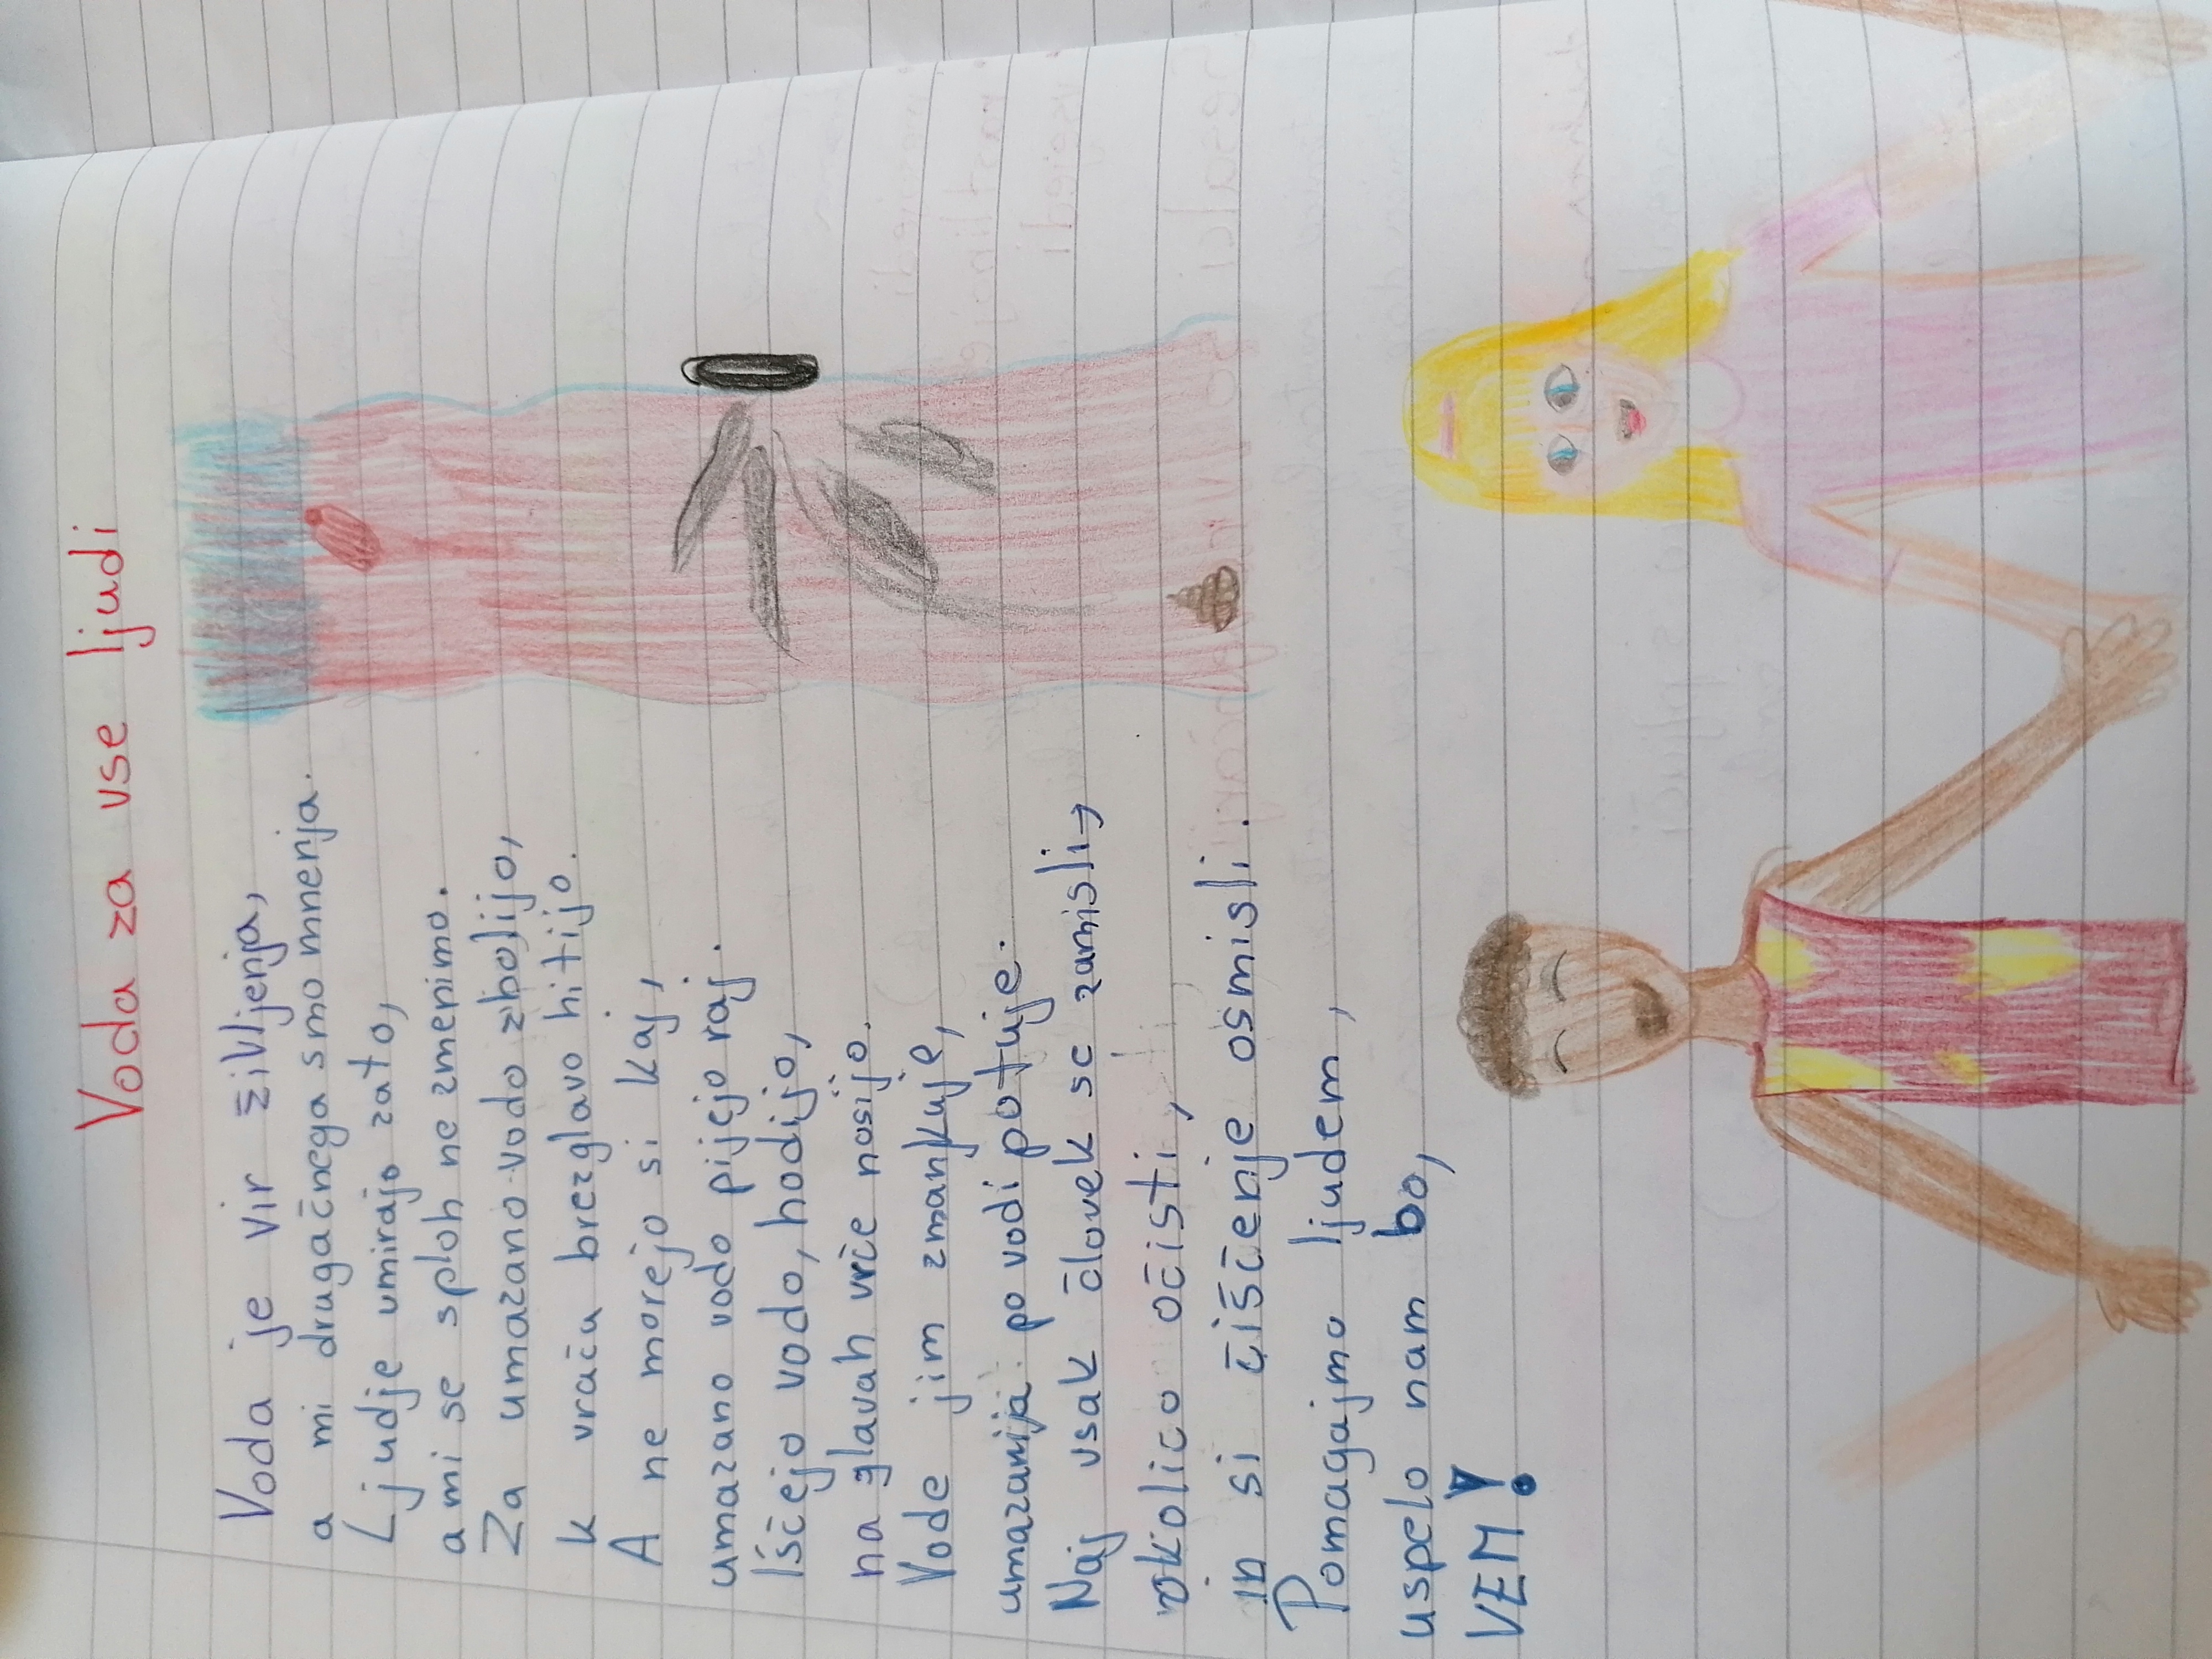 Voda za vse ljudi
Voda je vir življenja,
a mi drugačnega smo mnenja.
Ljudje umirajo zato,
a mi se sploh ne zmenimo.
Za umazano vodo zbolijo,
k vraču brezglavo hitijo.
A ne morejo si kaj,
umazano vodo pijejo raj.
Iščejo vodo, hodijo,
na glavah vrče nosijo.
Vode jim zmankuje,
umazanija po vodi potuje.
Naj vsak človek se zamisli,
okolico očisti,
in si čiščenje osmisli.
Pomagajmo ljudem,
uspelo nam bo,
VEM!